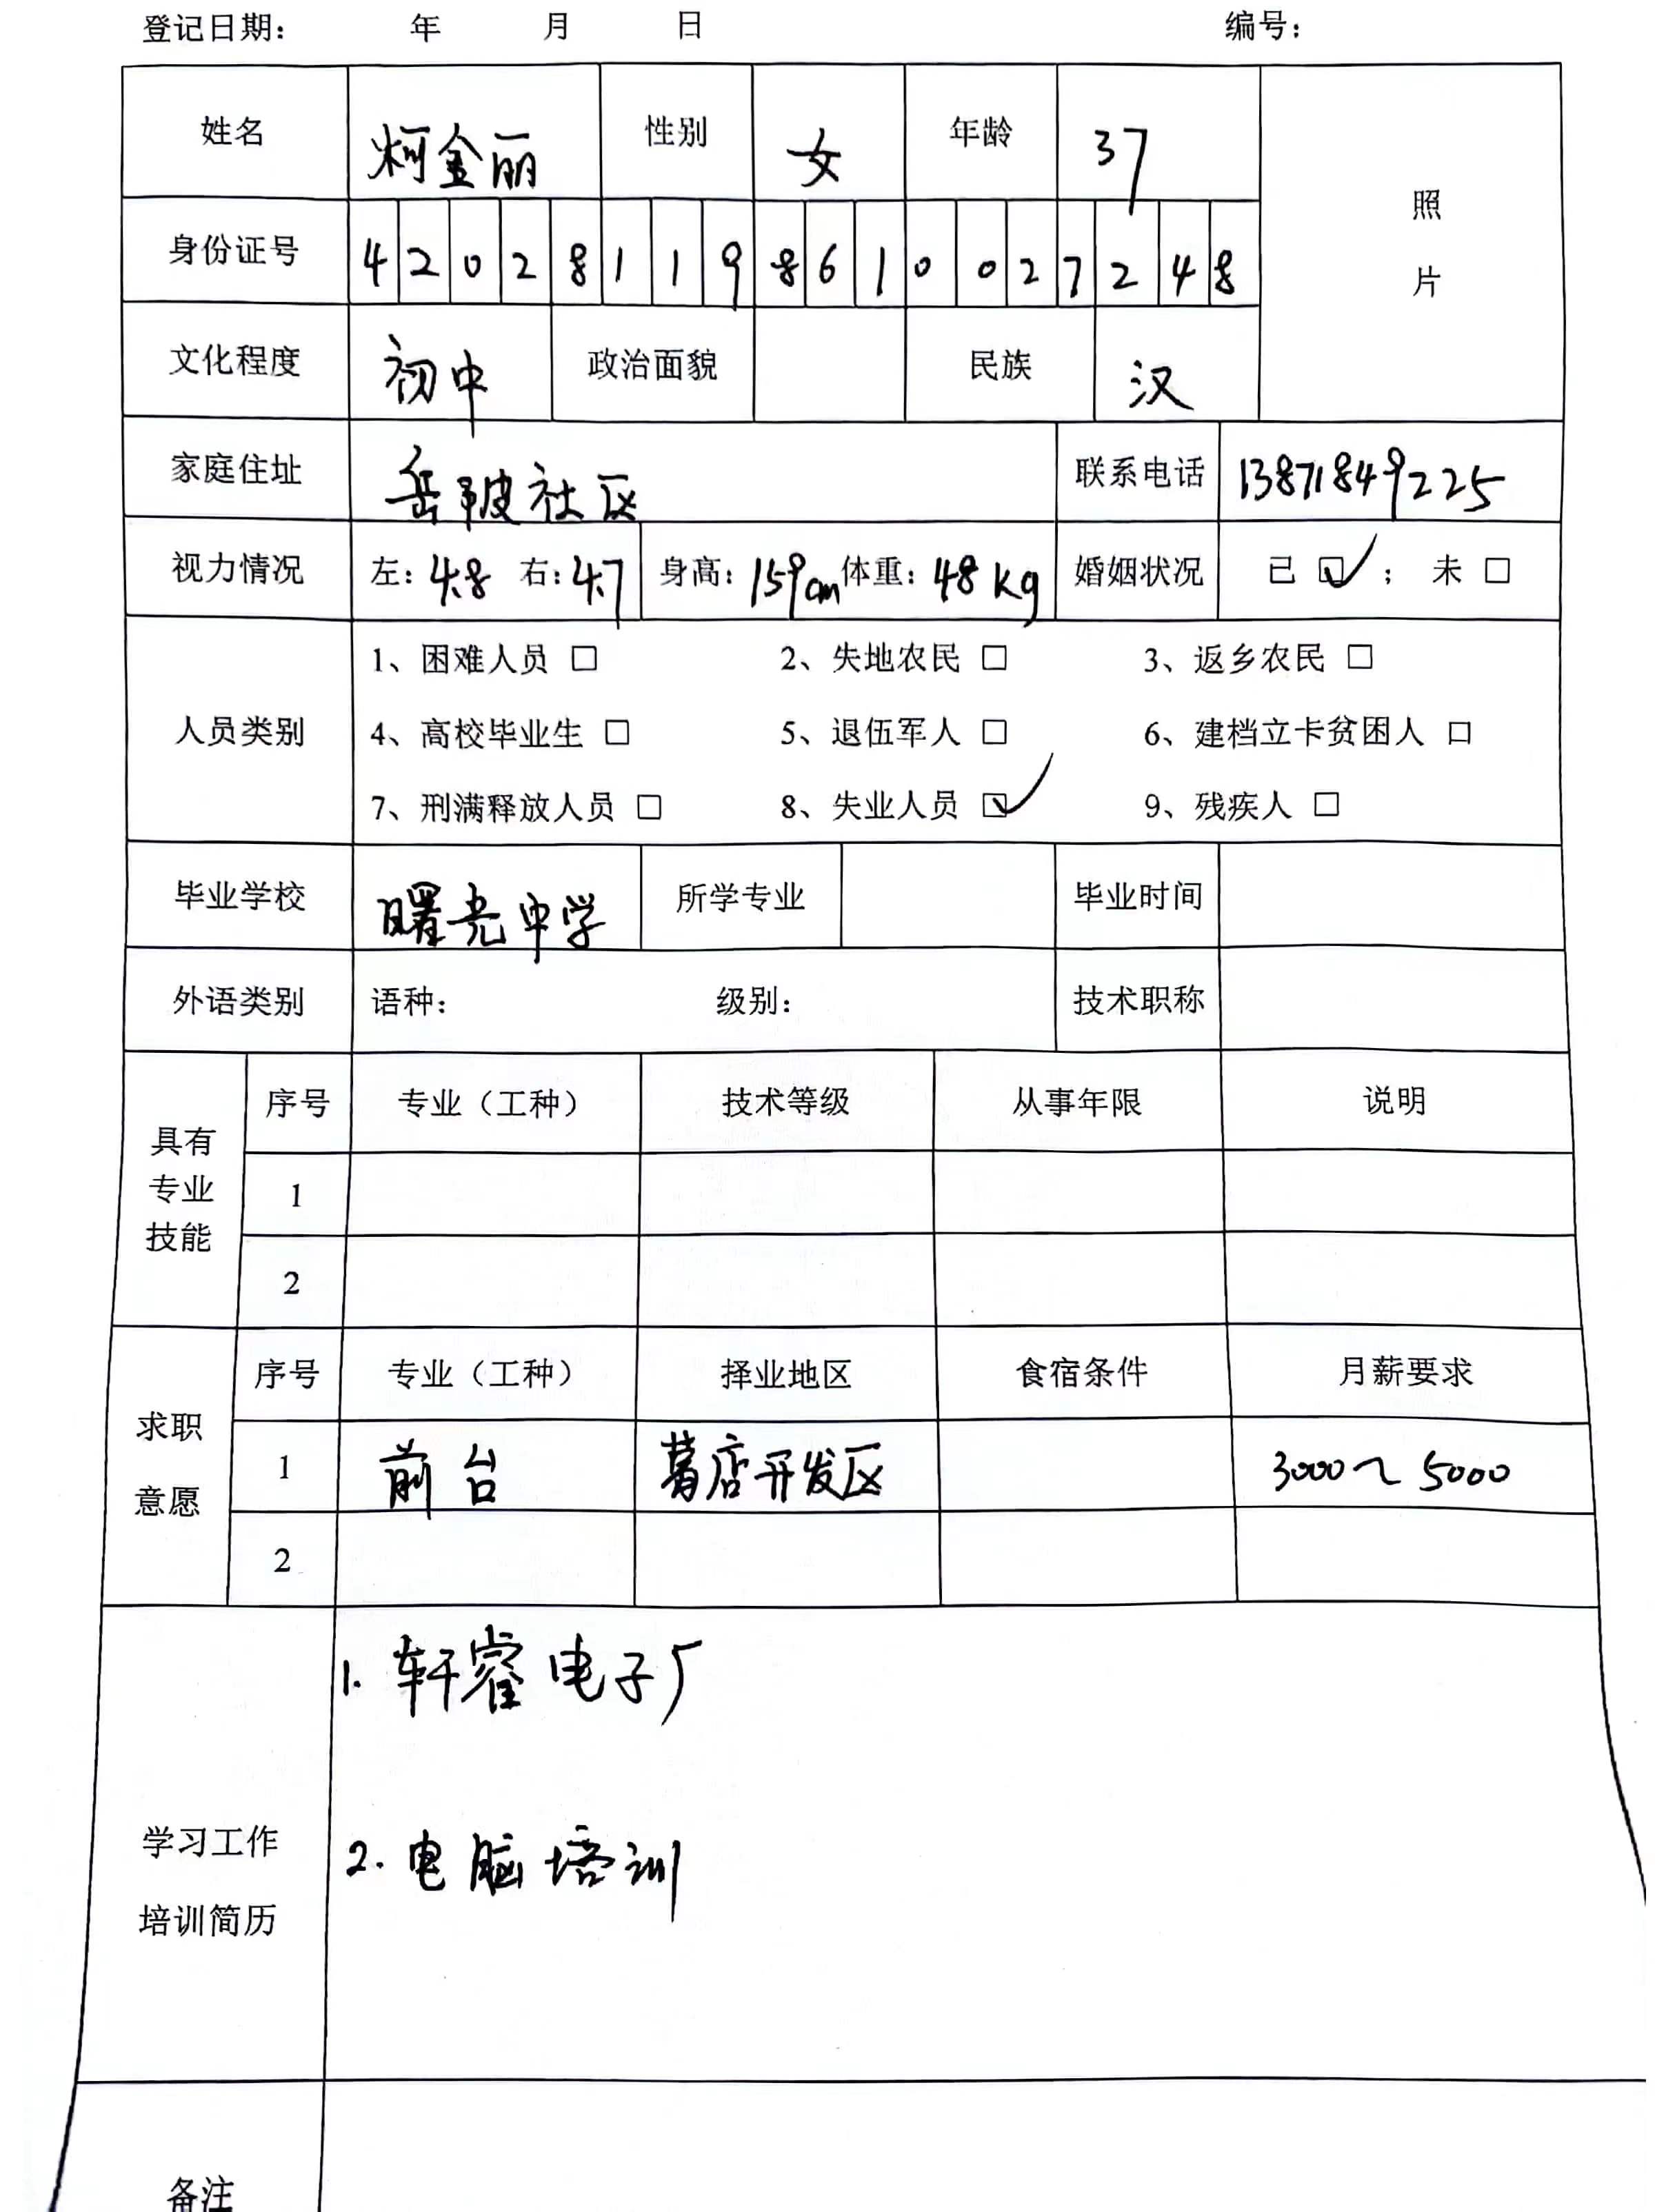 登记日期： 年 月 日 编号：
姓名 柯金丽 性别 女 年龄 37 照片
身份证号 420281198610027248
文化程度 初中 政治面貌 民族 汉
家庭住址 岳陂社区 联系电话 13871849225
视力情况 左：4.8 右：4.7 身高：159cm 体重：48kg 婚姻状况 已 ☑； 未 □
人员类别
1、困难人员 □ 2、失地农民 □ 3、返乡农民 □
4、高校毕业生 □ 5、退伍军人 □ 6、建档立卡贫困人 □
7、刑满释放人员 □ 8、失业人员 ☑ 9、残疾人 □
毕业学校 曙光中学 所学专业 毕业时间
外语类别 语种： 级别： 技术职称
具有专业技能
序号 专业（工种） 技术等级 从事年限 说明
1
2
求职意愿
序号 专业（工种） 择业地区 食宿条件 月薪要求
1 前台 葛店开发区 3000~5000
2
学习工作
培训简历
1. 轩 电子厂
2. 电脑培训
备注